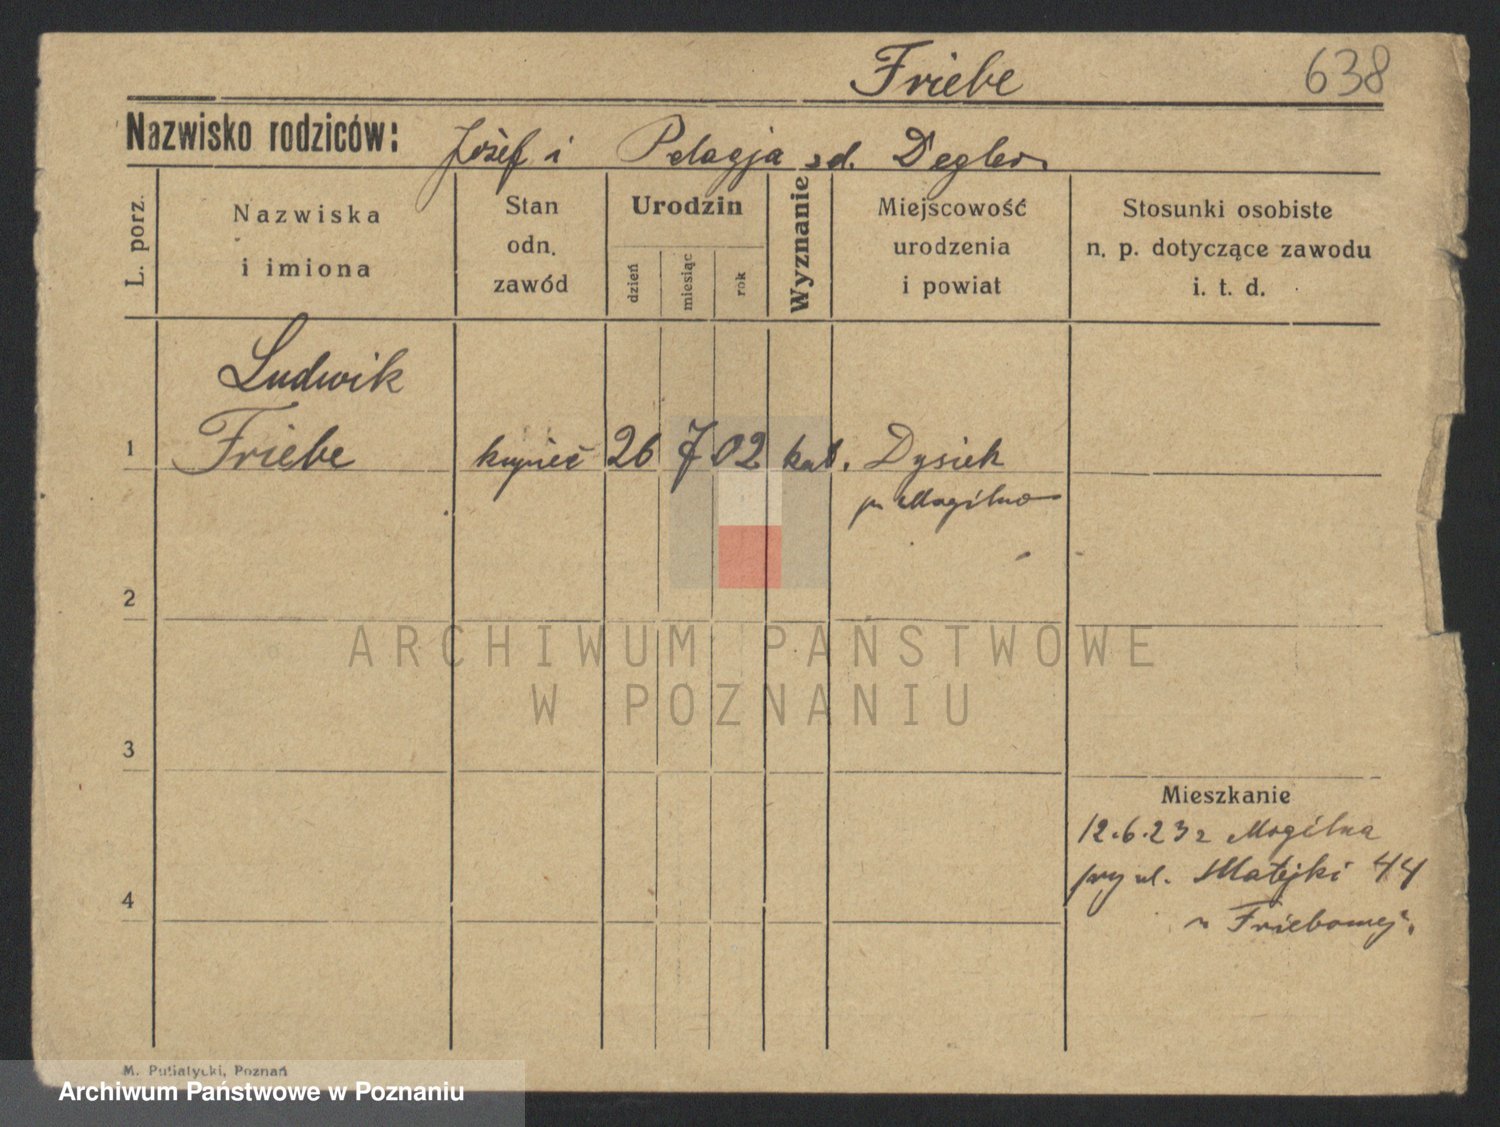 Friebe 638
Nazwisko rodziców: Józef i Pelagja zd. Degler
L. porz.
Nazwiska
i imiona
Stan
odn.
zawód
Urodzin
dzień
miesiąc
rok
Wyznanie
Miejscowość
urodzenia
i powiat
Stosunki osobiste
n. p. dotyczące zawodu
i. t. d.
Ludwik
1 Friebe kupiec 26 7 02 kat. Dysiek
p. Mogilno
2
ARCHIWUM PAŃSTWOWE
W POZNANIU
3
Mieszkanie
12.6.23 z Mogilna
przy ul. Matejki 44
4
u Friebowej.
M. Putiatycki, Poznań
Archiwum Państwowe w Poznaniu